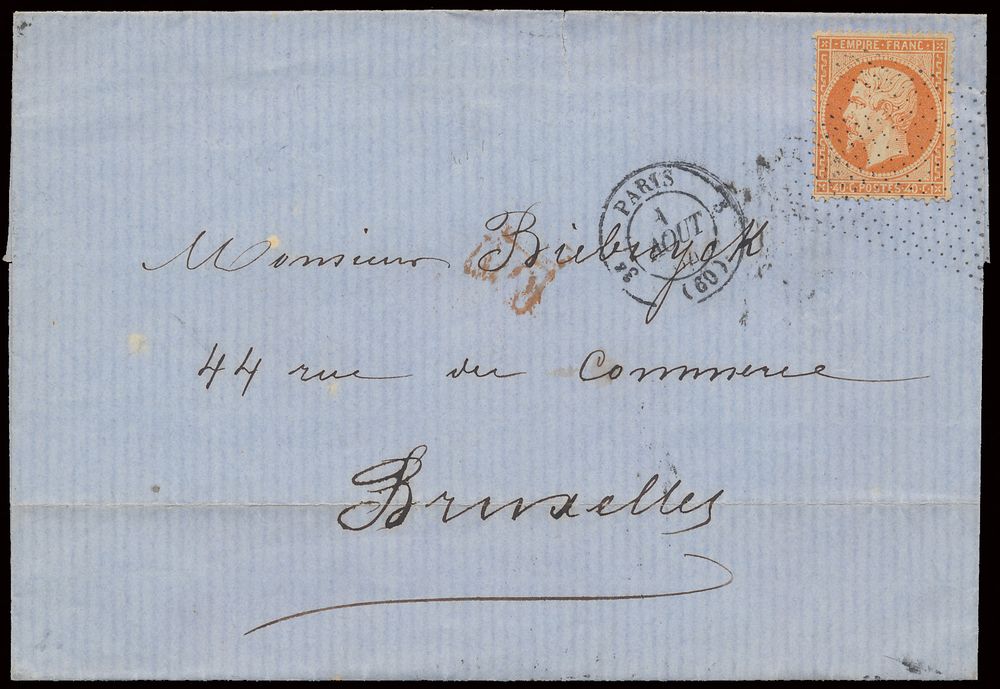 EMPIRE·FRANC·
40·C·POSTES·40·C·
PARIS
1
AOUT
(60)
Monsieur Biebuyck
44 rue du Commerce
Bruxelles